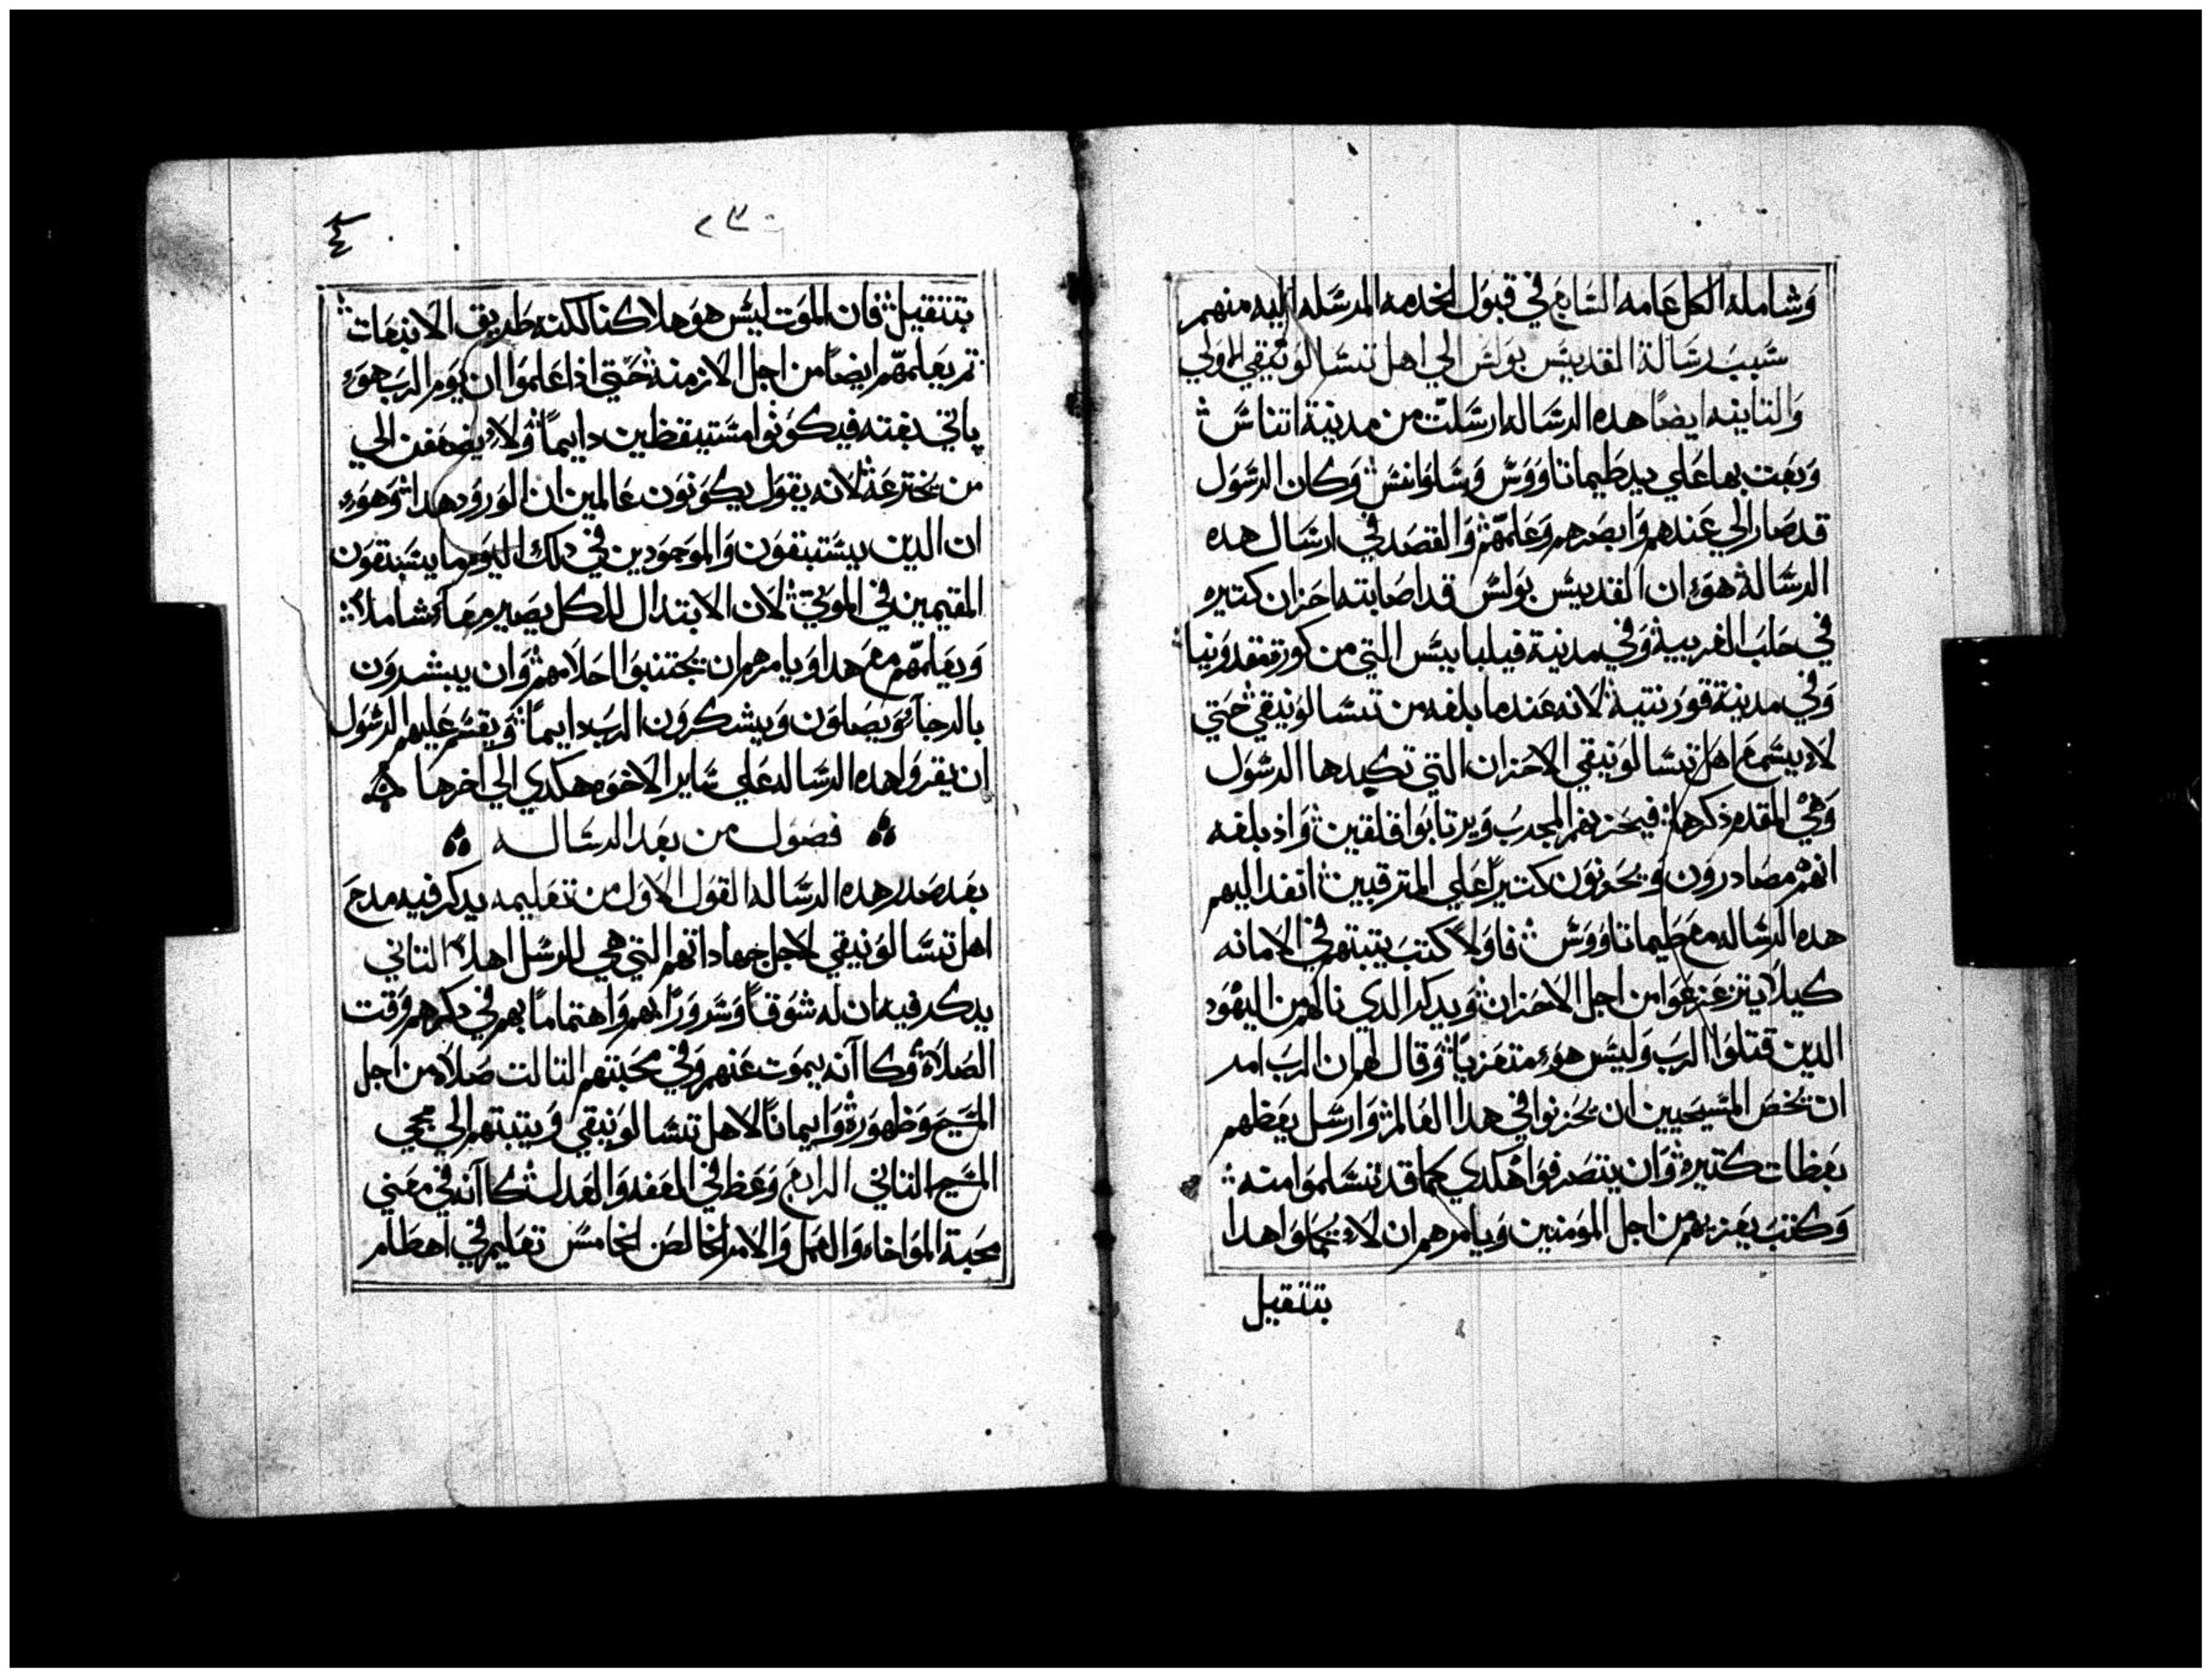 وشامله الكل عامه السابع في قبول الخدمه المرسله اليه منهم
سبب رسالة القديس بولس الي اهل تسالونيقي الاولي
والتانيه ايضا هده الرساله ارسلت من مدينة اتناس
وبعت بها علي يد طيماتاووس وسلوانس وكان الرسول
قد صار الي عندهم وابصرهم وعلمهم والقصد في ارسال هده
الرسالة هوء ان القديس بولس قد اصابته احزان كتيره
في حلب الغربية وفي مدينة فيلبابيس التي من كورة مقدونيا
وفي مدينة قورنتية لانه عندما بلغه من تسالونيقي حتي
لاء يسمع اهل تسالونيقي الاحزان التي تكبدها الرسول
وهي المقدم ذكرها فيحزنهم المجرب ويرتابوا قلقين واذ بلغه
انهم مصادرون ويحزنون كتيرا علي المترقبين انفد اليهم
هده الرساله مع طيماتاووس فاولا كتب يتبتهم في الامانه
كيلا يتزعزعوا من اجل الاحزان ويدكر الدي نالهم من اليهود
الدين قتلوا الرب وليس هوء متعزيا وقال لهم ان الرب امر
ان تخص المسيحيين ان يحزنوا في هدا العالم وارسل يعظهم
بعظات كتيره وان يتصرفوا هكدي كما قد تسلموا منه
وكتب يعزيهم من اجل المومنين ويامرهم ان لاء يحملوا هدا
بتتقيل
٢٣
٤
بتتقيل فان الموت ليس هو هلاكنا لكنه طريق الانبعات
تم يعلمهم ايضا من اجل الازمنه حتي اذا علموا ان يوم الرب هوء
ياتي بغته فيكونوا مستيقظين دايما ولاء يضعفن الي
من يخترعه لانه يقول يكونون عالمين ان الورود هدا وهوء
ان الدين يستبقون والموجودين في دلك اليوم ما يسبقون
المقيمين في الموتي لان الابتدال للكل يصير معا شاملا
ويعلمهم مع هدا ويامرهم ان يجتنبوا احلامهم وان يبشرون
بالرجاء ويصلون ويشكرون الرب دايما ويقسم عليهم الرسول
ان يقروا هده الرساله علي ساير الاخوه هكدي الي اخرها
فصول من بعد الرساله
بعد صدر هده الرساله القول الاول من تعليمه يدكر فيه مدح
اهل تسالونيقي لاجل جهاداتهم التي هي للرسل اهلا التاني
يدكر فيه ان له شوقا وسرورا بهم واهتماما بهم في دكرهم وقت
الصلاة وكا آنه يموت عنهم وفي محبتهم التالت صلاه من اجل
المسيح وظهوره وايمانا لاهل تسالونيقي ويتبتهم الي مجي
المسيح التاني الرابع وعظ في العفه والعدل كا آنه في معني
محبة المواخاه والعمل والامر الخالص الخامس تعليم في اهطام